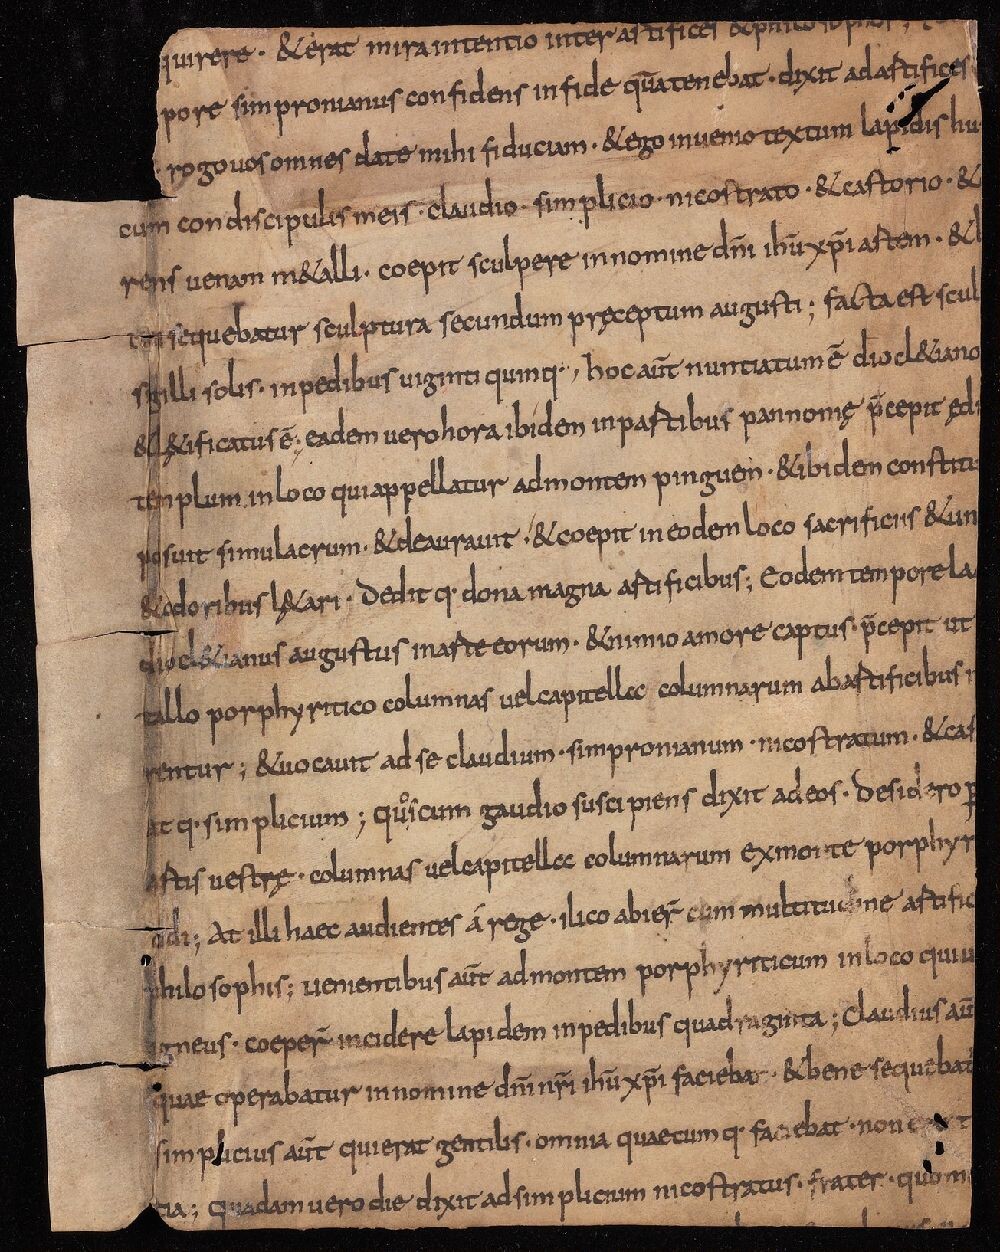 quirere · &erat mira intentio inter artifices &philosophos ;
pore simpronianus confidens in fide quā tenebat · dixit ad artifices
rogo uos omnes date mihi fiduciam · &ego inuenio textum lapidis hu
cum condiscipulis meis · claudio · simplicio · nicostrato · &castorio · &
rens uenam m&alli · coepit sculpere in nomine dn̄i ihū xp̄i artem · &
sequebatur sculptura secundum pręceptum augusti ; facta est scul
sigilli solis · in pedibus uiginti quinq· , hoc aūt nuntiatum ē diocl&iano
&l&ificatus ē ; eadem uero hora ibidem in partibus pannonię p̄cepit ędi
templum in loco qui appellatur ad montem pinguem · &ibidem constitu
posuit simulacrum · &deaurauit · &coepit in eodem loco sacrificiis &un
&odoribus l&ari · Dedit q· dona magna artificibus ; Eodem tempore la
diocl&ianus augustus in arte eorum · &nimio amore captus · p̄cepit ut
tallo porphyritico columnas uel capitella columnarum ab artificibus
rentur ; &uocauit ad se claudium · simpronianum · nicostratum · &cas
at q· simplicium ; quos cum gaudio suscipiens dixit ad eos · Desidero p
artis uestrę · columnas uel capitella columnarum ex monte porphyr
odi ; At illi haec audientes á rege · ilico abier̄ cum multitudine artific
philosophis ; uenientibus aūt ad montem porphyriticum in loco qui u
igneus · coeper̄ incidere lapidem in pedibus quadraginta ; Claudius aūt
quae operabatur in nomine dn̄i nr̄i ihū xp̄i faciebat · &bene sequebat
simplicius aūt qui erat gentilis · omnia quaecumq· faciebat · non
tia ; Quadam uero die dixit ad simplicium nicostratus · frater · quom